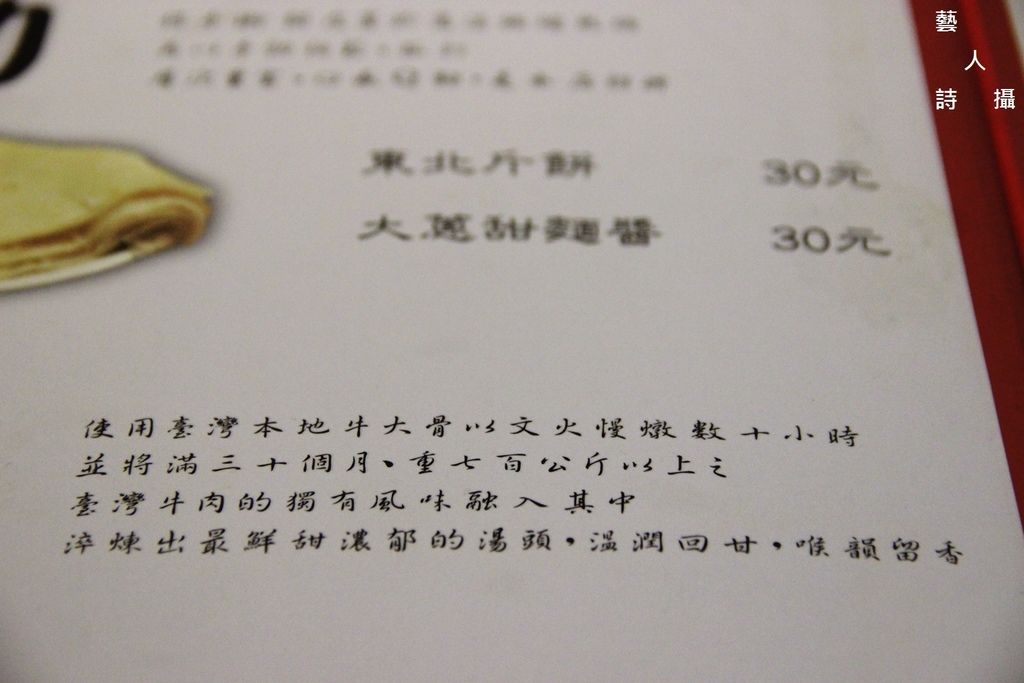 藝
人
詩 攝
東北斤餅 30元
大蔥甜麵醬 30元
使用臺灣本地牛大骨以文火慢燉數十小時
並將滿三十個月、重七百公斤以上之
臺灣牛肉的獨有風味融入其中
淬煉出最鮮甜濃郁的湯頭，溫潤回甘，喉韻留香